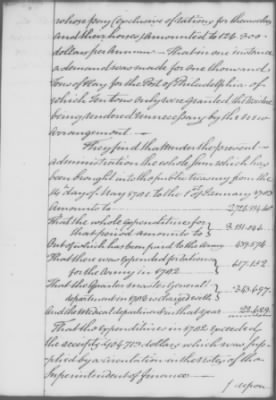 whose pay (exclusive of rations for themselves
and their horses) amounted to 126.300
dollars per Annum — That in one instance
a demand was made for one thousand
tons of Hay for the Post of Philadelphia of
which Ten tons only were granted the
being rendered unnecessary by the new
arrangement —
They find that under the present
administration the whole sum which has
been brought into the public treasury from the
day of May 1781 to the 1st of January 1783
Amounts to
That the whole expenditures for
that period amounts to
Out of which has been paid to the Army
That there was expended for rations
for the Army in 1782
That the Quarter master General's
department in 1782
And the Medical department in that year
That the expenditures in 1782 exceeded
the receipts 404713 dollars which was sup-
plied by a circulation in the notes of the
Superintendent of finance —
/ upon